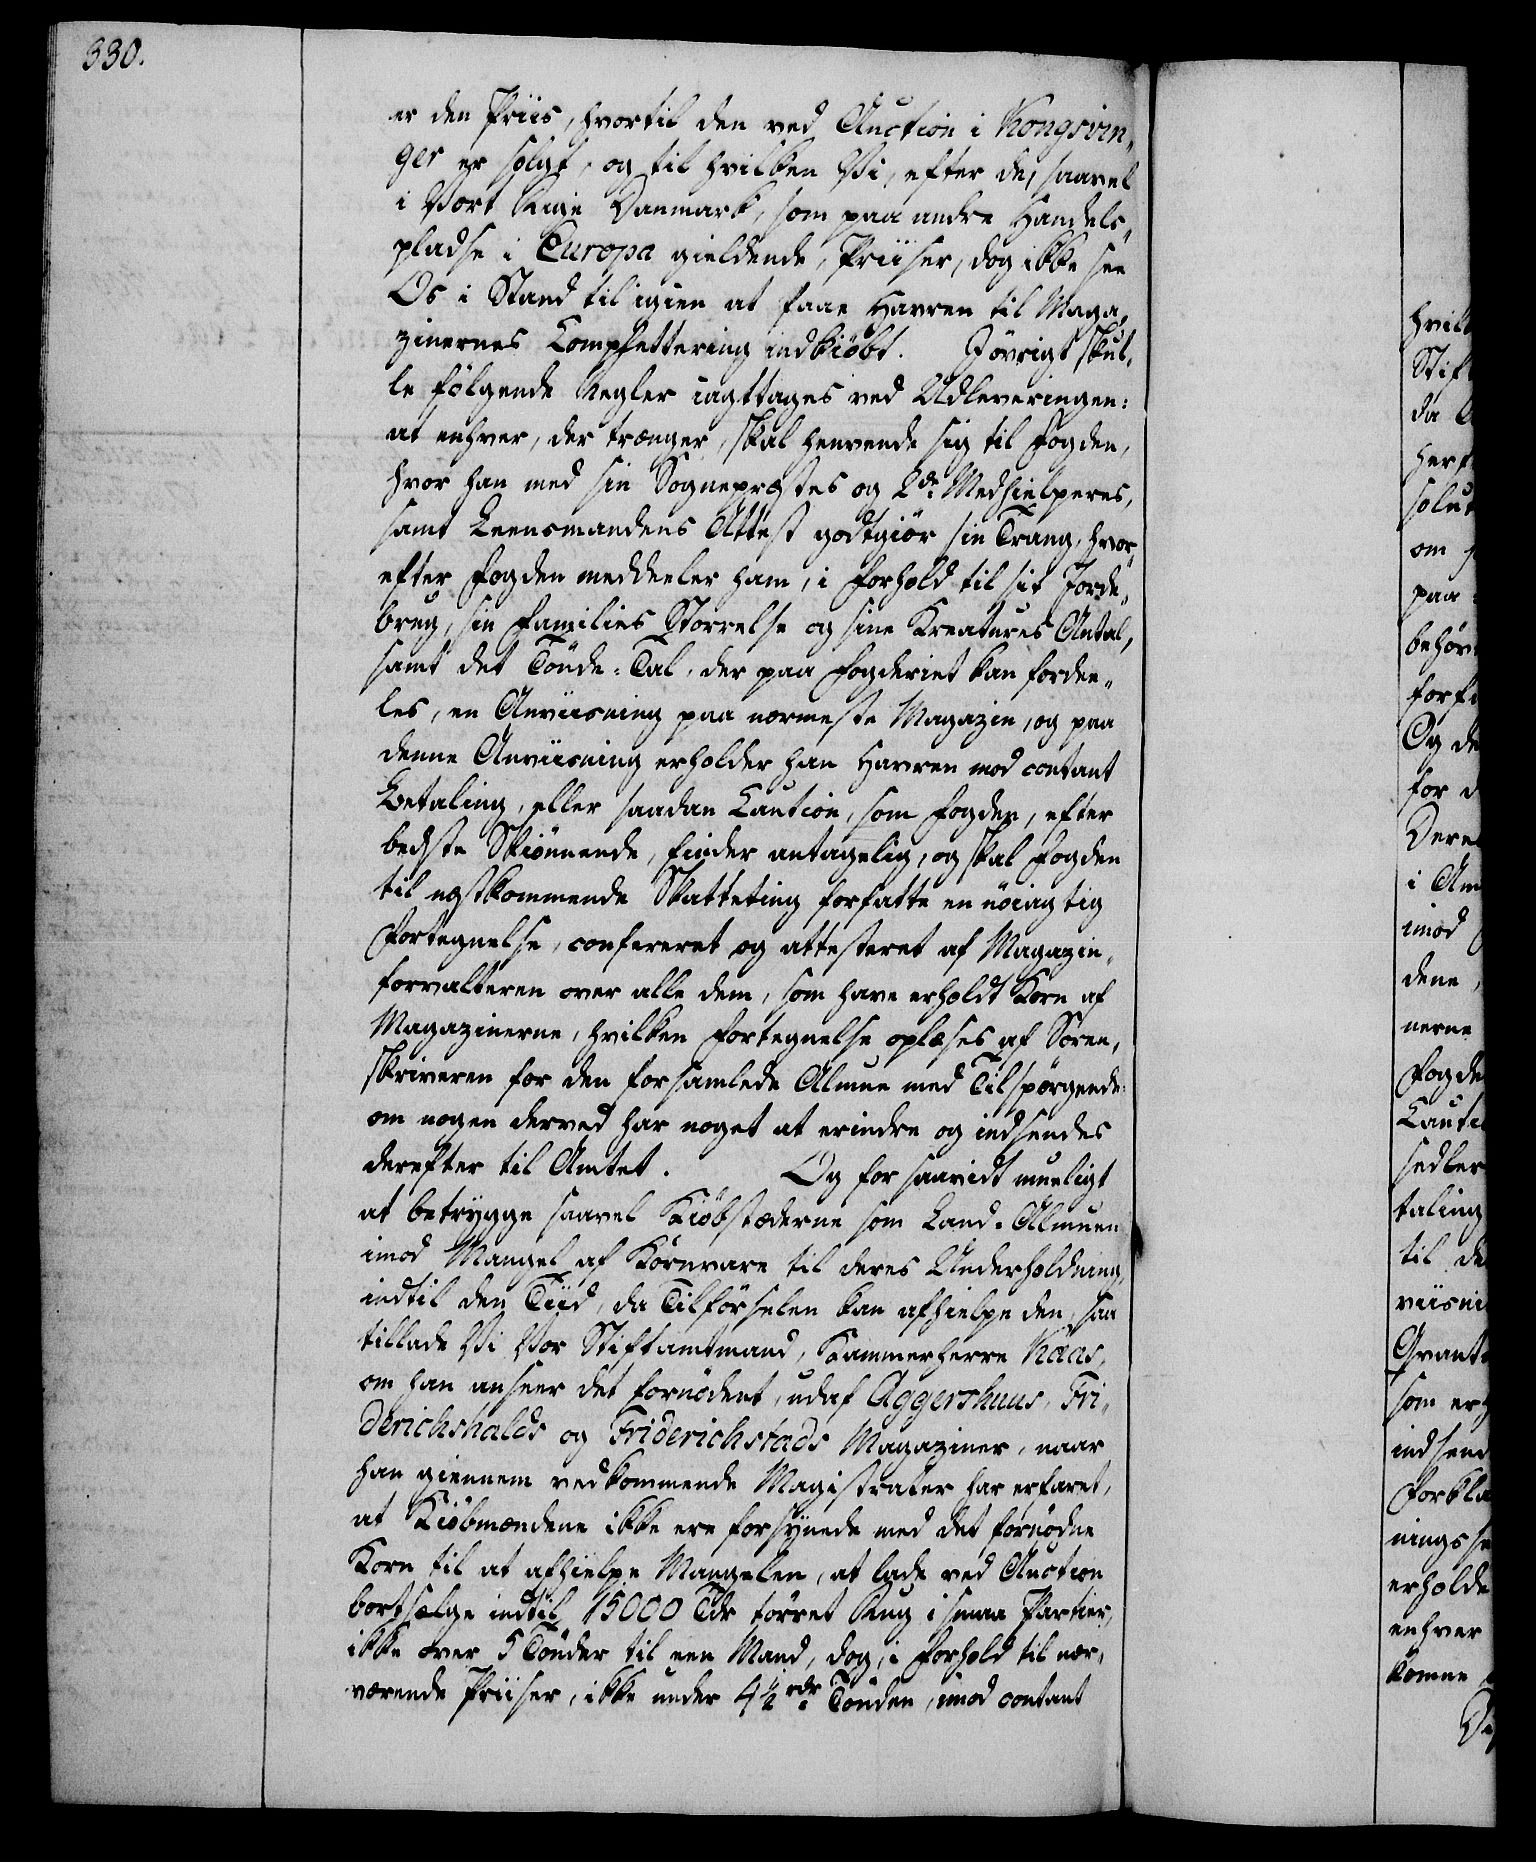 330.
er den Priis, hvortil den ved Auction i Kongsvin„
ger er solgt, og til hvilken Vi, efter de, saavel
i Vort Rige Danmark, som paa andre Handels„
pladse i Europa gieldende, Priiser, dog ikke see
Os i Stand til igien at faae Havren til Maga„
zinernes Complettering indkiøbt. Jøvrigt skul„
le følgende Regler iagttages ved Udleveringen:
at enhver, der trænger, skal henvende sig til Fogden,
hvor han med sin Sognepræstes og 2de Medhielperes,
samt Leensmandens Attest godtgiør sin Trang, hvor„
efter Fogden meddeeler ham, i Forhold til sit Jorde„
brug, sin Families Størrelse og sine Kreatures Antal,
samt det Tønde-Tal, der paa Fogderiet kan fordee„
les, en Anviisning paa nærmeste Magazin, og paa
denne Anviisning erholder han Havren mod contant
Betaling, eller saadan Caution, som Fogden, efter
bedste Skiønnende, finder antagelig, og skal Fogden
til næstkommende Skatteting forfatte en nøiagtig
Fortegnelse, confereret og attesteret af Magazin„
forvalteren over alle dem, som have erholdt Korn af
Magazinerne, hvilken Fortegnelse oplæses af Soren„
skriveren for den forsamlede Almue med Tilspørgende:
om nogen derved har noget at erindre og indsendes
derefter til Amtet. Og for saavidt mueligt
at betrygge saavel Kiøbstæderne som Land-Almuen
imod Mangel af Kornvare til deres Underholdning,
indtil den Tiid, da Tilførselen kan afhielpe den, saa
tillade Vi Vor Stiftamtmand, Kammerherre Kaas,
om han anseer det fornødent, udaf Aggershuus, Fri„
derichshalds og Friderichstads Magaziner, naar
han giennem vedkommende Magistrater har erfaret,
at Kiøbmændene ikke ere forsynede med det fornødne
Korn til at afhielpe Mangelen, at lade ved Auction
bortsælge indtil 15000 Tdr tørret Rug i smaa Partier,
ikke over 5 Tønder til een Mand, dog, i Forhold til nær„
værende Priiser, ikke under 4½ rdr Tønden, imod contant
hvil
Stif
da
herf
solut
om
paa
behøv
forfa
Og de
for d
Dere
i Am
imod
dene,
nerne
Fogde
Cauti
sedler
taling
til de
viisni
Qvant
som erh
indsend
Forkla
nings se
erholde
enhver
komne